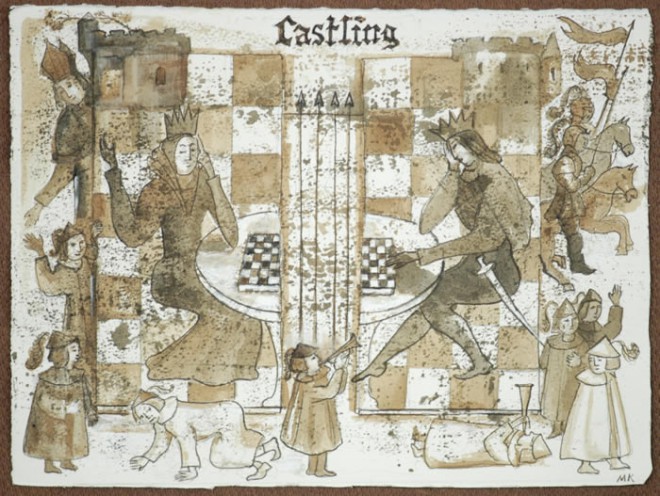 Castling
MK